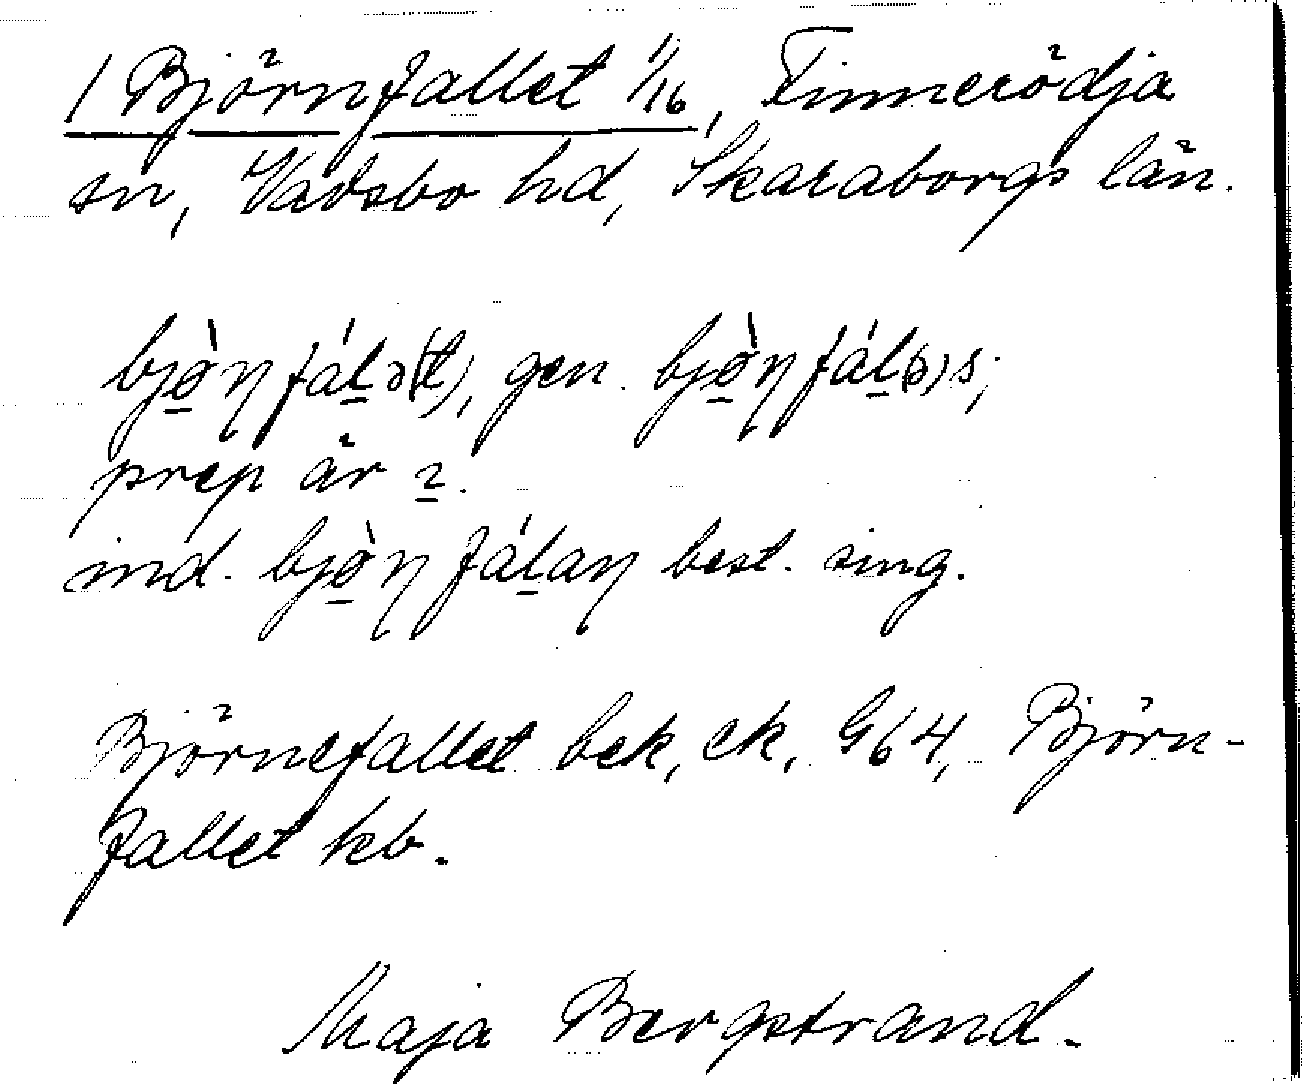 1 Björnfallet 1/16, Tinnerödja
sn, Vadsbo hd, Skaraborgs län.
bjö̀ɳfáḻə(t), gen. bjö̀ɳfáḻ(ə)s;
prep är i.
ind. bjö̀ɳfáḻaɳ best. sing.
Björnefallet bek, ek, G64, Björn-
fallet kb.
Maja Bergstrand.